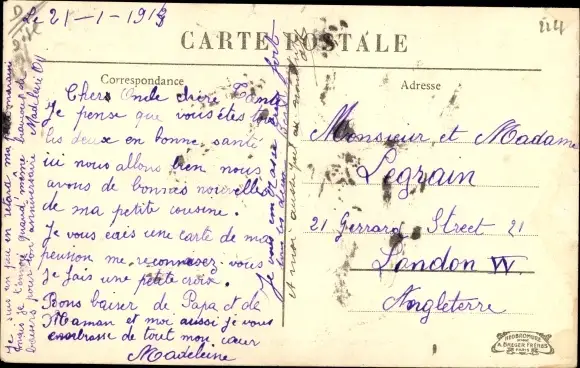 Le 21-1-1913
CARTE POSTALE
224
Correspondance
Adresse
Chers Oncle chère Tante
Je pense que vous êtes
les deux en bonne santé
ici nous allons bien nous
avons de bonnes nouvelles
de ma petite cousine.
Je vous envoie une carte de ma
pension me reconnaisez-vous
je fais une petite croix.
Bons baiser de Papa et de
Maman et moi aussi je vous
embrasse de tout mon cœur
Madeleine
Je vous embrasse bien fort
tous les deux
Je suis un peu en retard ma
mais je t'envoie quand même beaucoup de
baisers pour ton anniversaire Madeleine
Monsieur et Madame
Legrain
21 Gerrard Street 21
London W.
Angleterre
NEOBROMURE
A. BREGER FRÈRES
PARIS